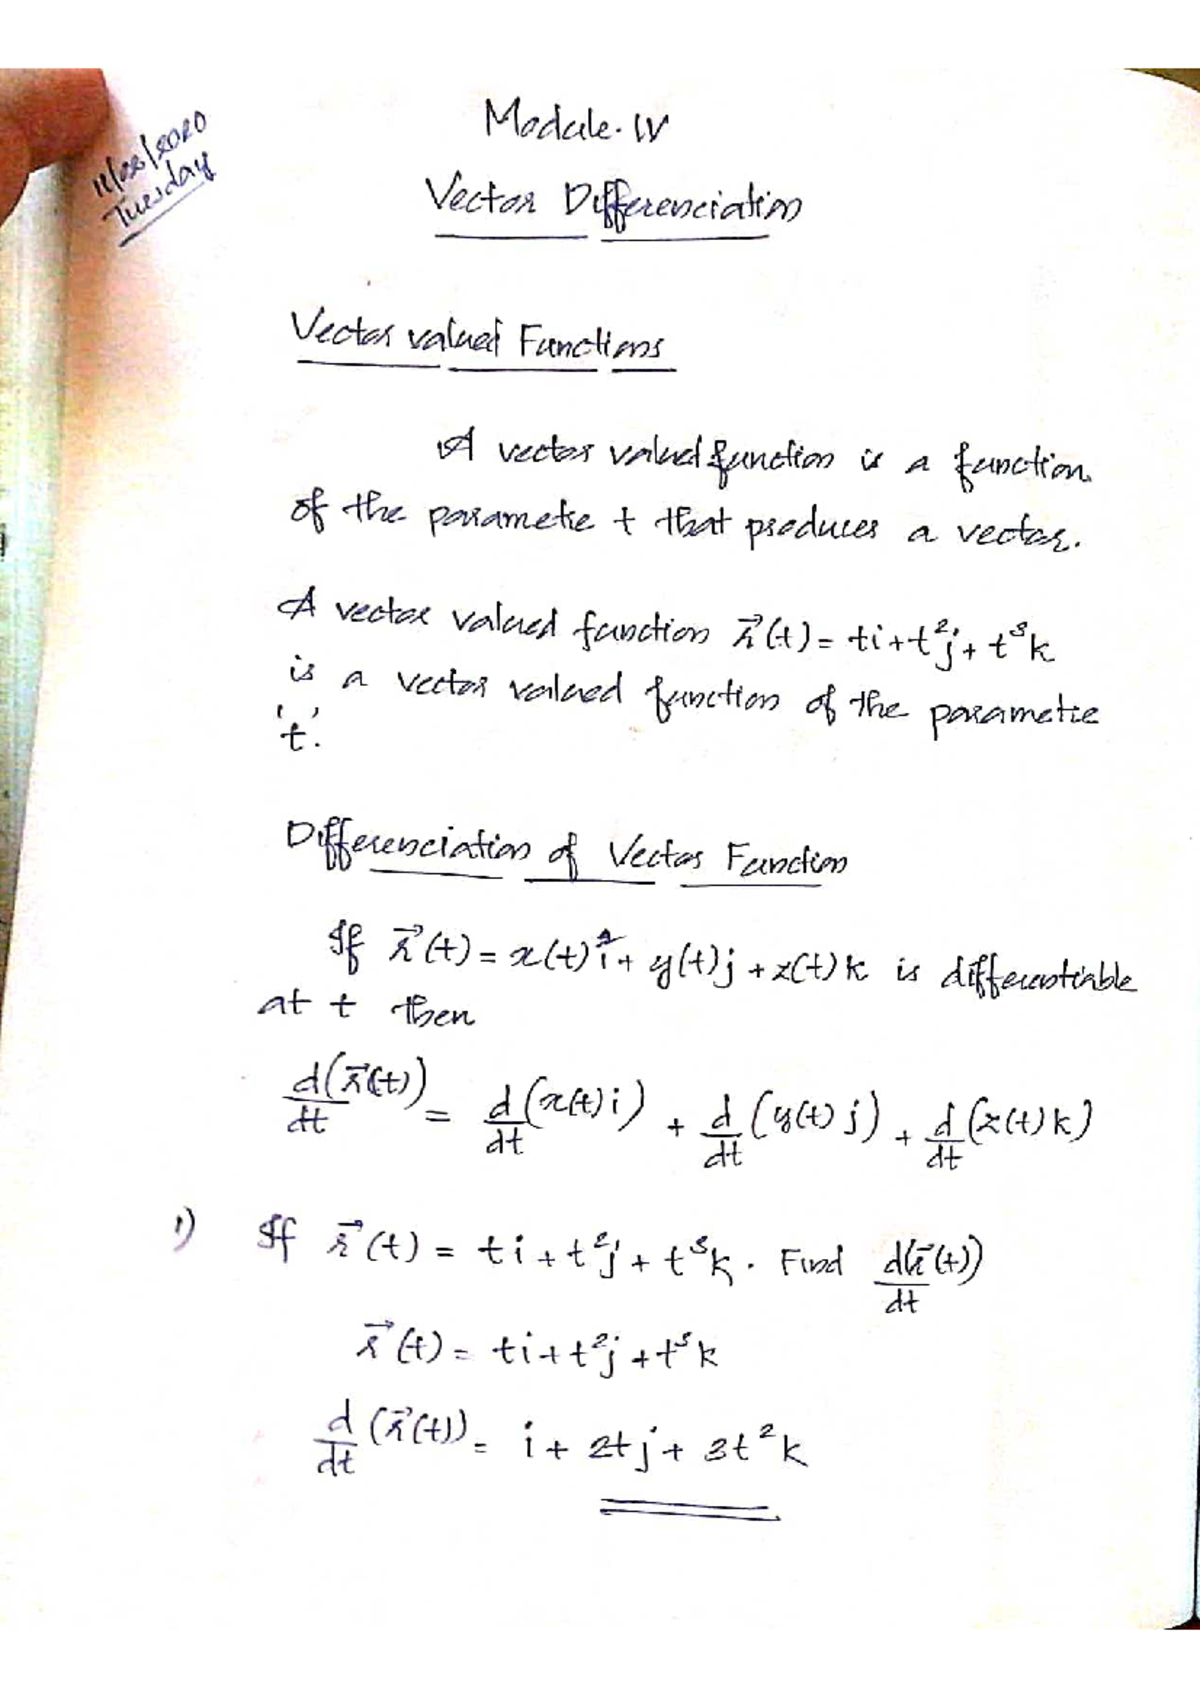 Module-IV
Tuesday
Vector Differenciation
Vector valued Functions
A vector valued function is a function
of the parametre t that produces a vector.
A vector valued function r⃗(t) = ti + t²j + t³k
is a vector valued function of the parametre
't'.
Differenciation of Vector Function
If r⃗(t) = x(t)î + y(t)j + z(t)k is differentiable
at t then
d(r⃗(t))/dt = d/dt (x(t)i) + d/dt (y(t)j) + d/dt (z(t)k)
1) If r⃗(t) = ti + t²j + t³k. Find d(r⃗(t))/dt
r⃗(t) = ti + t²j + t³k
d/dt (r⃗(t)) = i + 2tj + 3t²k